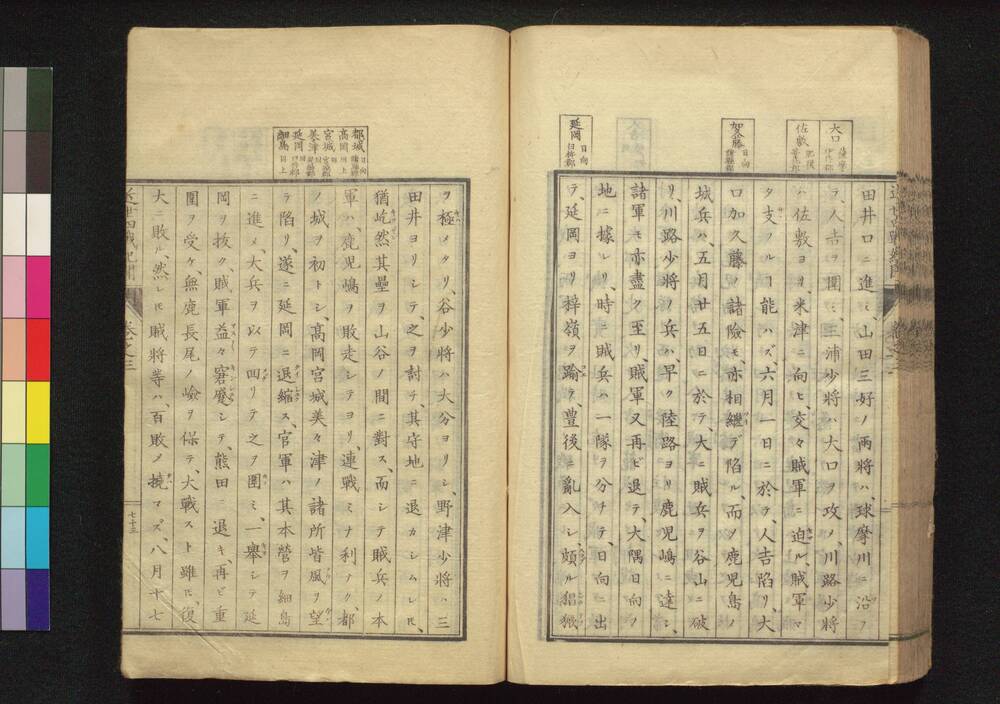 大口
佐敷 肥後
加久藤 日向
延岡 日向 臼杵郡
田井口ニ進ミ、山田三好ノ両將ハ、球摩川ニ沿フ
テ、人吉ヲ圍ミ、三浦少將ハ大口ヲ攻メ、川路少將
ハ佐敷ヨリ、米津ニ向ヒ、交々賊軍ニ迫ル、賊軍
タ支フルヿ能ハズ、六月一日ニ於テ、人吉陥リ、大
口加久藤ノ諸險モ、亦相繼デ陥ル、而メ鹿児島ノ
城兵ハ、五月廿五日ニ於テ、大ニ賊兵ヲ谷山ニ破
リ、川路少將ノ兵ハ、早ク陸路ヨリ鹿児嶋ニ達シ、
諸軍モ亦盡ク至リ、賊軍又再ビ退テ、大隅日向ノ
地ニ據レリ、時ニ賊兵ハ一隊ヲ分チテ、日向ニ出
テ、延岡ヨリ梓嶺ヲ踰テ、豊後ニ亂入シ、頗ル猖獗
都城 日向
高岡 同上
宮城
美々津
延岡
細島 同上
ヲ極メタリ、谷少將ハ大分ヨリシ、野津少將ハ三
田井ヨリシテ、之ヲ討テ、其守地ニ退カシムレ𪜈、
猶屹然其壘ヲ山谷ノ間ニ對ス、而シテ賊兵ノ本
軍ハ、鹿児嶋ヲ敗走シテヨリ、連戰ミナ利ナク、都
ノ城ヲ初トシ、高岡宮城美々津ノ諸所皆風ヲ望
テ陥リ、遂ニ延岡ニ退縮ス、官軍ハ其本營ヲ細島
ニ進メ、大兵ヲ以テ四リテ之ヲ圍ミ、一擧シテ延
岡ヲ抜ク、賊軍益々窘蹙シテ、熊田ニ退キ、再ビ重
圍ヲ受ケ、無鹿長尾ノ嶮ヲ保テ、大戰スト雖𪜈、復
大ニ敗ル、然レ𪜈賊將等ハ、百敗メ撓マズ、八月十七
卷之三
七十三